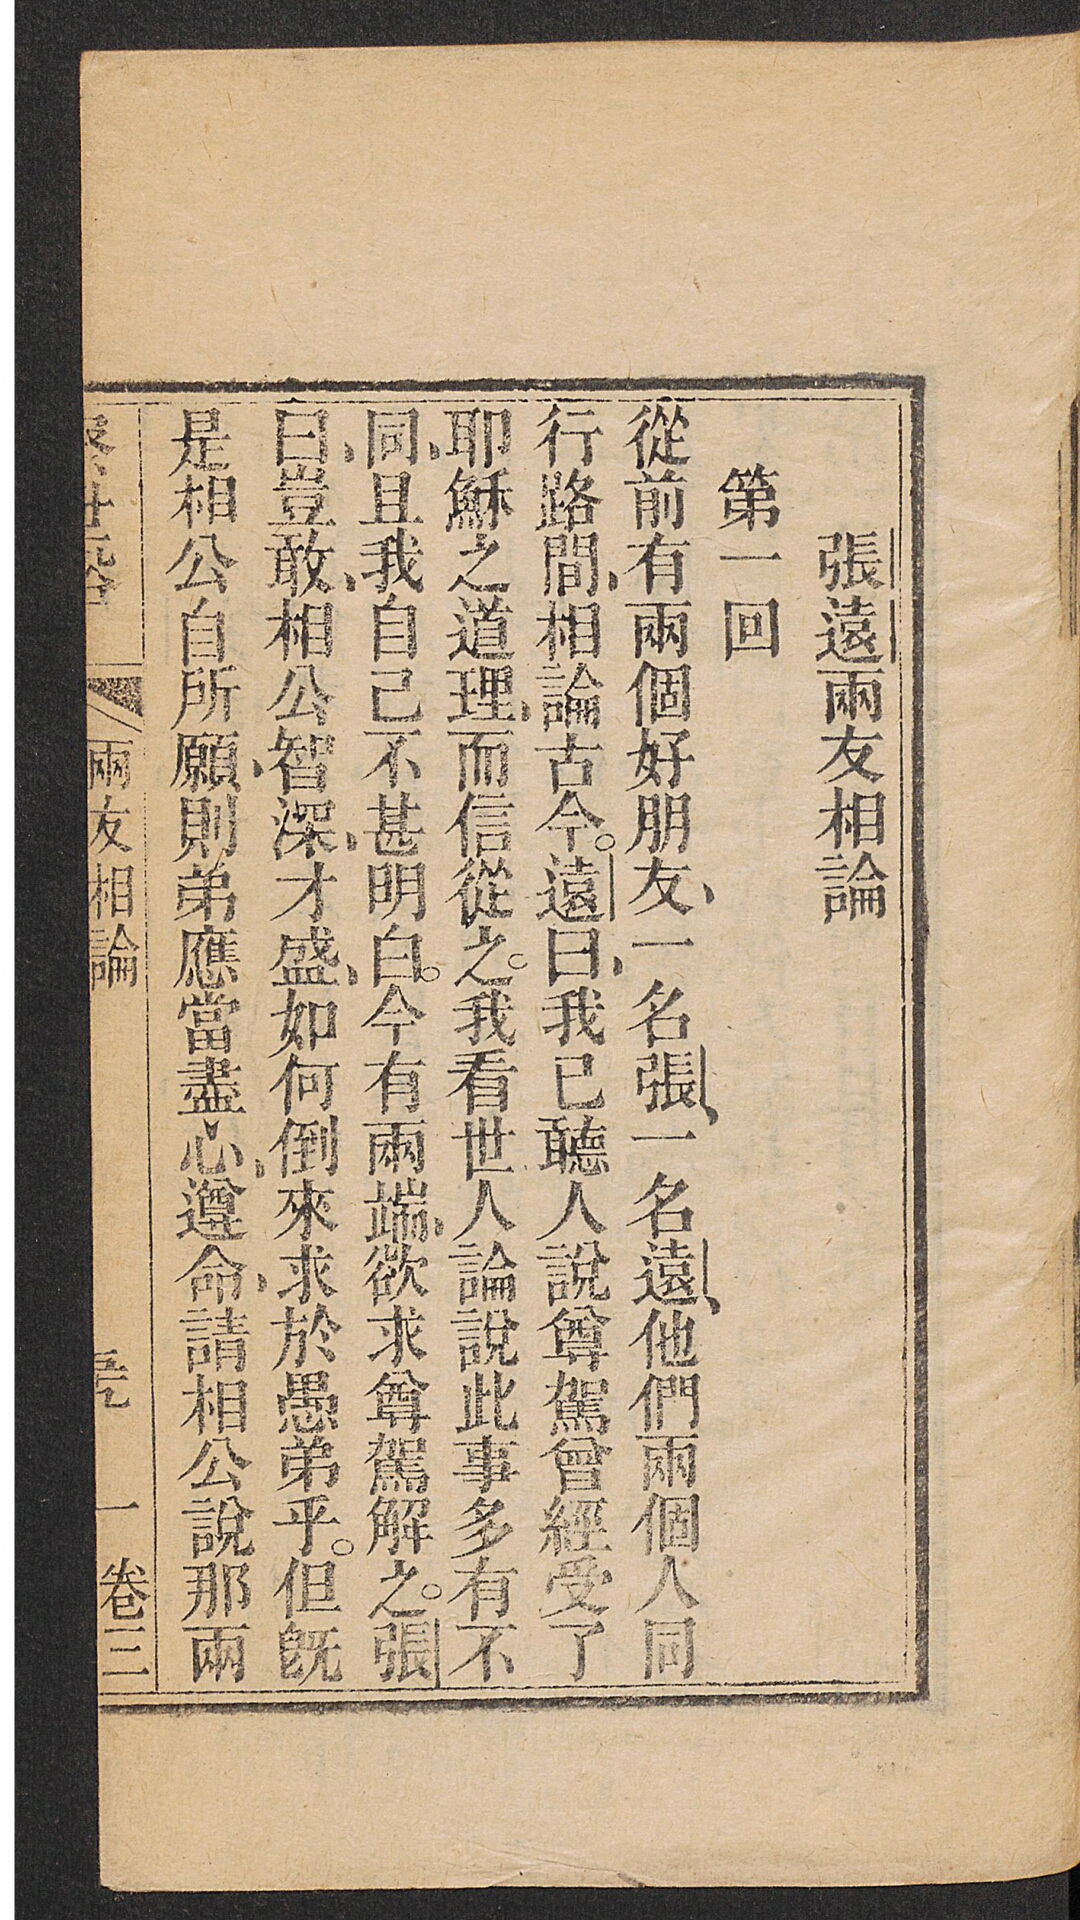 張遠兩友相論
第一回
從前有兩個好朋友、一名張、一名遠、他們兩個人同
行路間、相論古今。遠曰、我已聽人說尊駕曾經受了
耶穌之道理、而信從之。我看世人論說此事多有不
同、且我自己不甚明白。今有兩端、欲求尊駕解之。張
曰、豈敢、相公智深、才盛、如何倒來求於愚弟乎。但旣
是相公自所願、則弟應當盡心、遵命、請相公說那兩
兩友相論 一 卷三